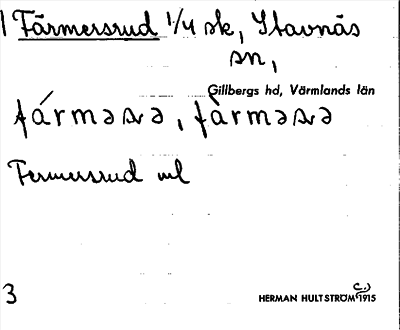 1 Färmersrud 1/4 sk, Stavnäs
sn,
Gillbergs hd, Värmlands län
fármәsrә, fàrmәsrә
Fermersrud ml
3
HERMAN HULTSTRÖM c:) 1915